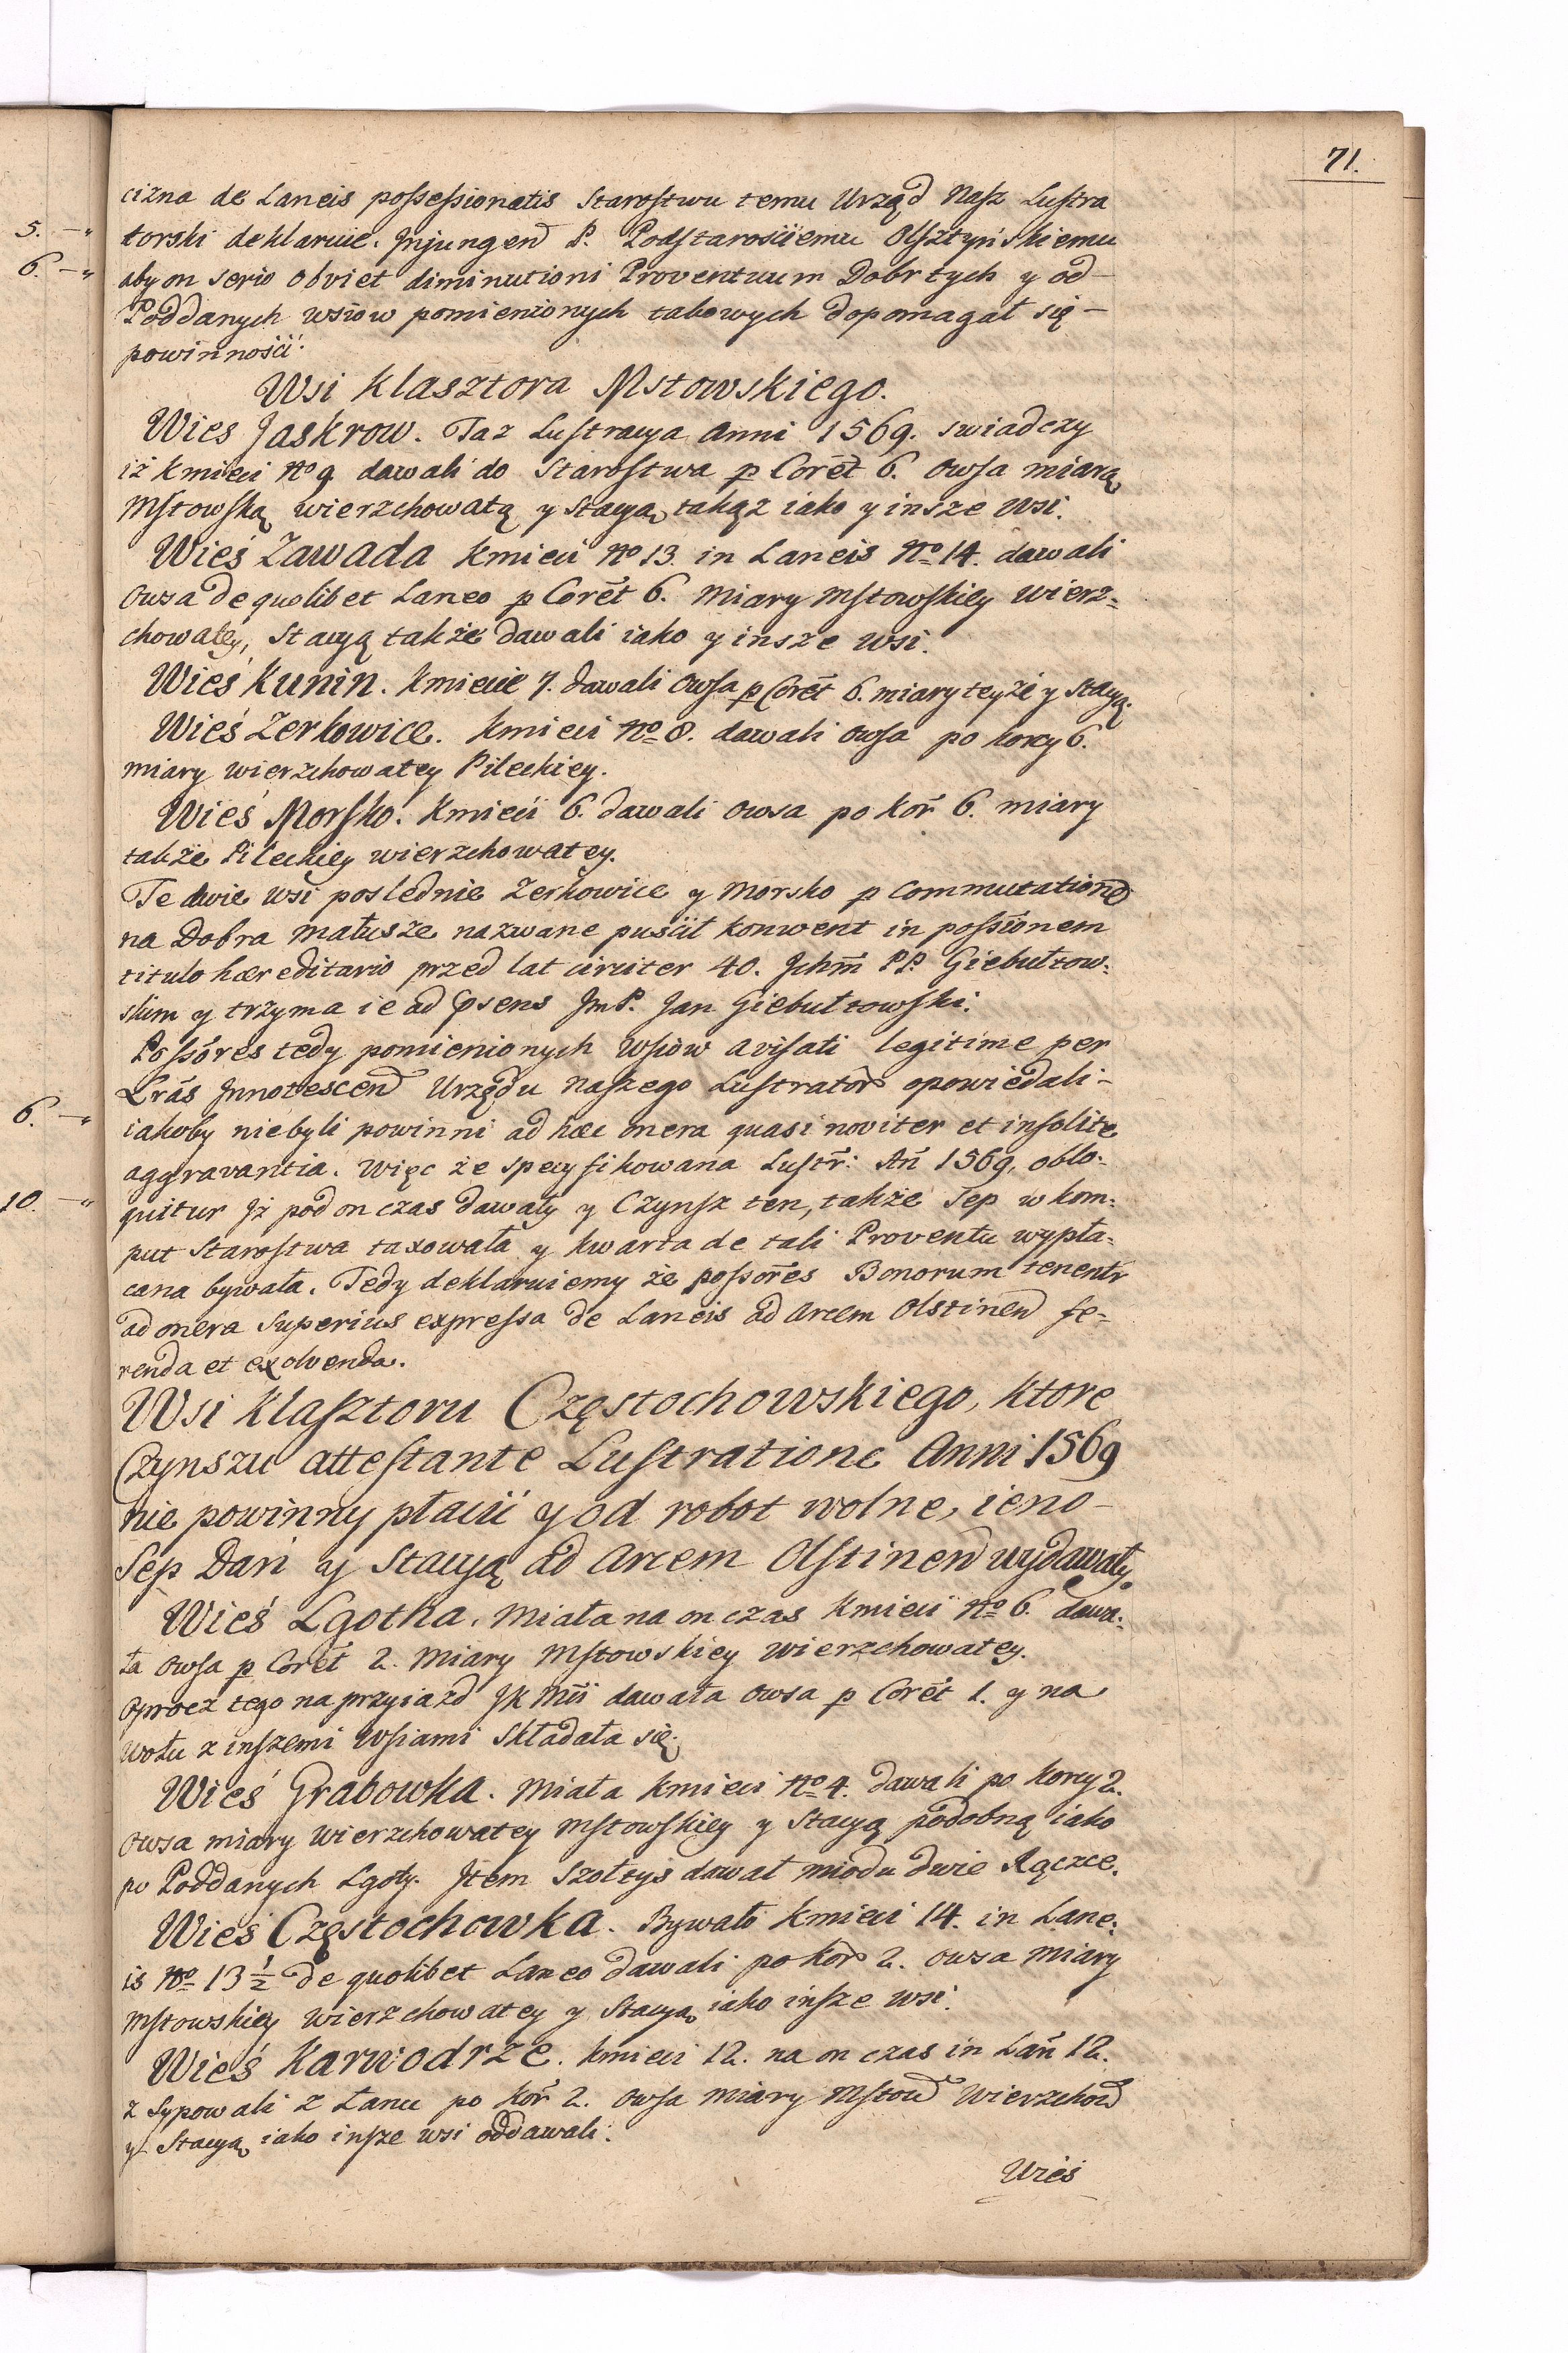 71.
cizna de Laneis possessionatis Starostwu temu Urząd Nasz Lustra
5. —"
torski deklaruie. Injungend P. Podstarościemu Olsztyńskiemu
6. —"
aby on serio obviet diminutioni Proventuum Dobr tych y od —
Poddanych wsiow pomienionych takowych dopomagał się —
powinności.
Wsi Klasztora Mstowskiego.
Wies Jaskrow. Taz Lustracya Anni 1569. swiadczy
iż kmieci No 9 dawali do Starostwa p Corēt 6. owsa miarą
Mstowską wierzchowatą y stacyą takąz iako y insze wsi.
Wieś Zawada kmieci No 13. in Laneis No 14. dawali
owsa de quolibet Laneo p Corēt 6. Miary Mstowskiey wierz=
chowatey, stacyą także dawali iako y insze wsi.
Wieś Kunin. kmiecie 7. dawali owsa p Corēt 6. miary teyże y stacyą.
Wieś Zerkowice. kmieci No 8. dawali owsa po korcy 6.
miary wierzchowatey Pileckiey.
Wieś Morsko. kmieci 6. dawali owsa po kor̃ 6. miary
także Pileckiey wierzchowatey.
Te dwie wsi poslednie Zerkowice y Morsko p commutationē
na Dobra Małusze nazwane puścił konwent in possionem
titulo hæreditario przed lat circiter 40. Ichm̃ PP. Giebułtow=
skim y trzyma ie ad psens ImP. Jan Giebułtowski.
Possores tedy pomienionych wsiow avisati legitime per
Lrás Innotescend Urzędu naszego Lustrator opowiedali —
6. —"
iakoby niebyli powinni ad hæc onera quasi noviter et insolite
aggravantia. Więc że specyfikowana Lustr̃: An̄ 1569, oblo=
10. —"
quitur Iż pod on czas dawały y Czynsz ten, także Sep w kom=
put Starostwa taxowała y kwarta de tali Proventu wypła=
cana bywała. Tedy deklaruiemy że possores Bonorum tenentr
ad onera superius expressa de Laneis ad Arcem Olstinend fe=
renda et exolvenda.
Wsi Klasztoru Częstochowskiego, ktore
Czynszu attestante Lustratione Anni 1569
nie powinny płacić y od robot wolne, ieno —
Sep Dań y Stacyą ad Arcem Olstinend wydawały.
Wieś Lgotka. Miała na on czas kmieci No 6. dawa=
ła owsa p Coret 2. Miary Mstowskiey wierzchowatey.
oprocz tego na przyiazd JK Mći dawała owsa p Corēt 1. y na
wołu z inszemi wsiami składała się.
Wieś Grabowka. Miała kmieci No 4. dawali po korcy 2.
owsa miary wierzchowatey Mstowskiey y Stacyą podobną iako
po Poddanych Lgoty. Item Szołtys dawał miodu dwie Rączce.
Wieś Częstochowka. Bywało kmieci 14. in Lane=
is No 13 1/2 de quolibet Laneo dawali po kor 2. owsa miary
Mstowskiey wierzchowatey y Stacyą iako insze wsi.
Wieś Karwodrze. kmieci 12. na on czas in Lañ 12.
z sypowali z Łanu po kor̃ 2. owsa miary Mstow wierzchow
y Stacyą iako insze wsi oddawali.
Wieś